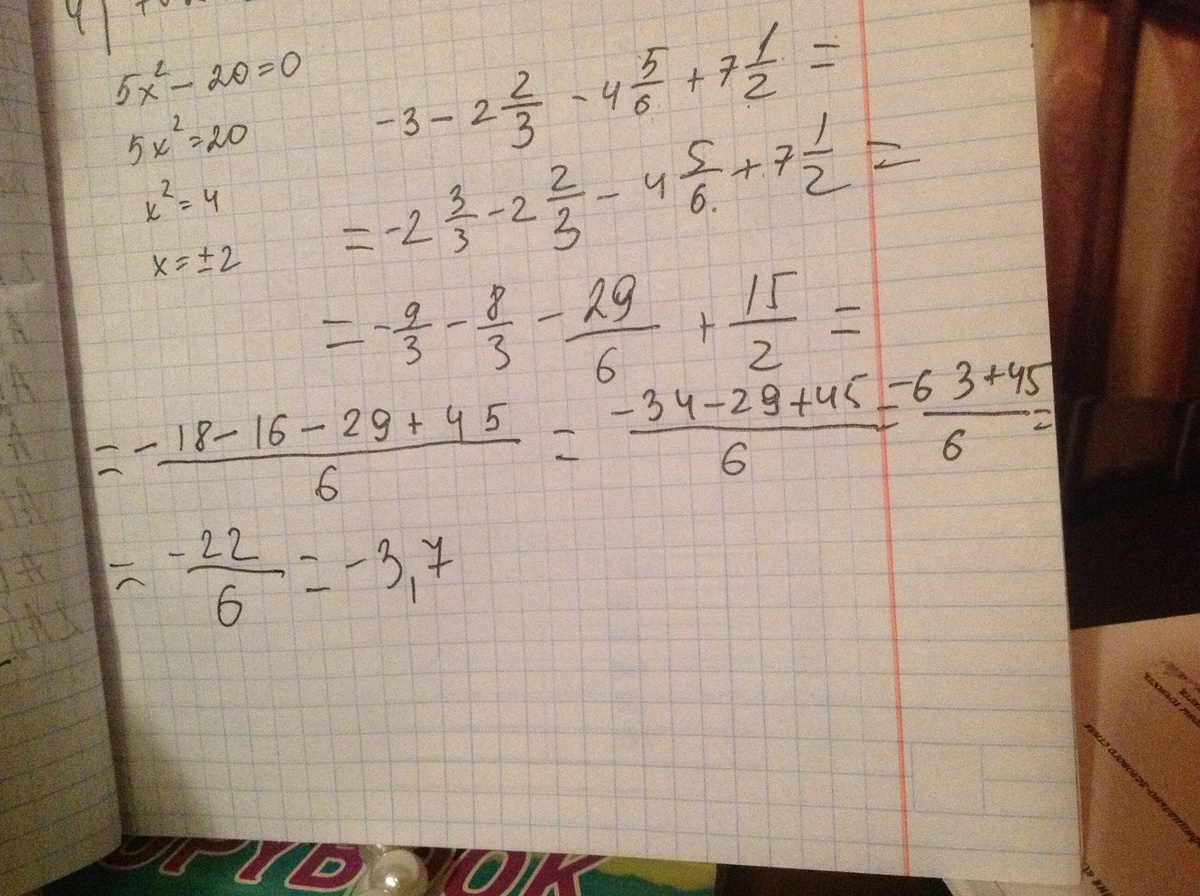 4)
5x² – 20 = 0
5x² = 20
x² = 4
x = ±2
-3 - 2 2/3 - 4 5/6 + 7 1/2 =
= -2 3/3 - 2 2/3 - 4 5/6. + 7 1/2 =
= - 9/3 - 8/3 - 29/6 + 15/2 =
= (-18 - 16 - 29 + 45)/6 = (-34 - 29 + 45)/6 = (-63 + 45)/6 =
= -22/6 = -3,7
COPYBOOK